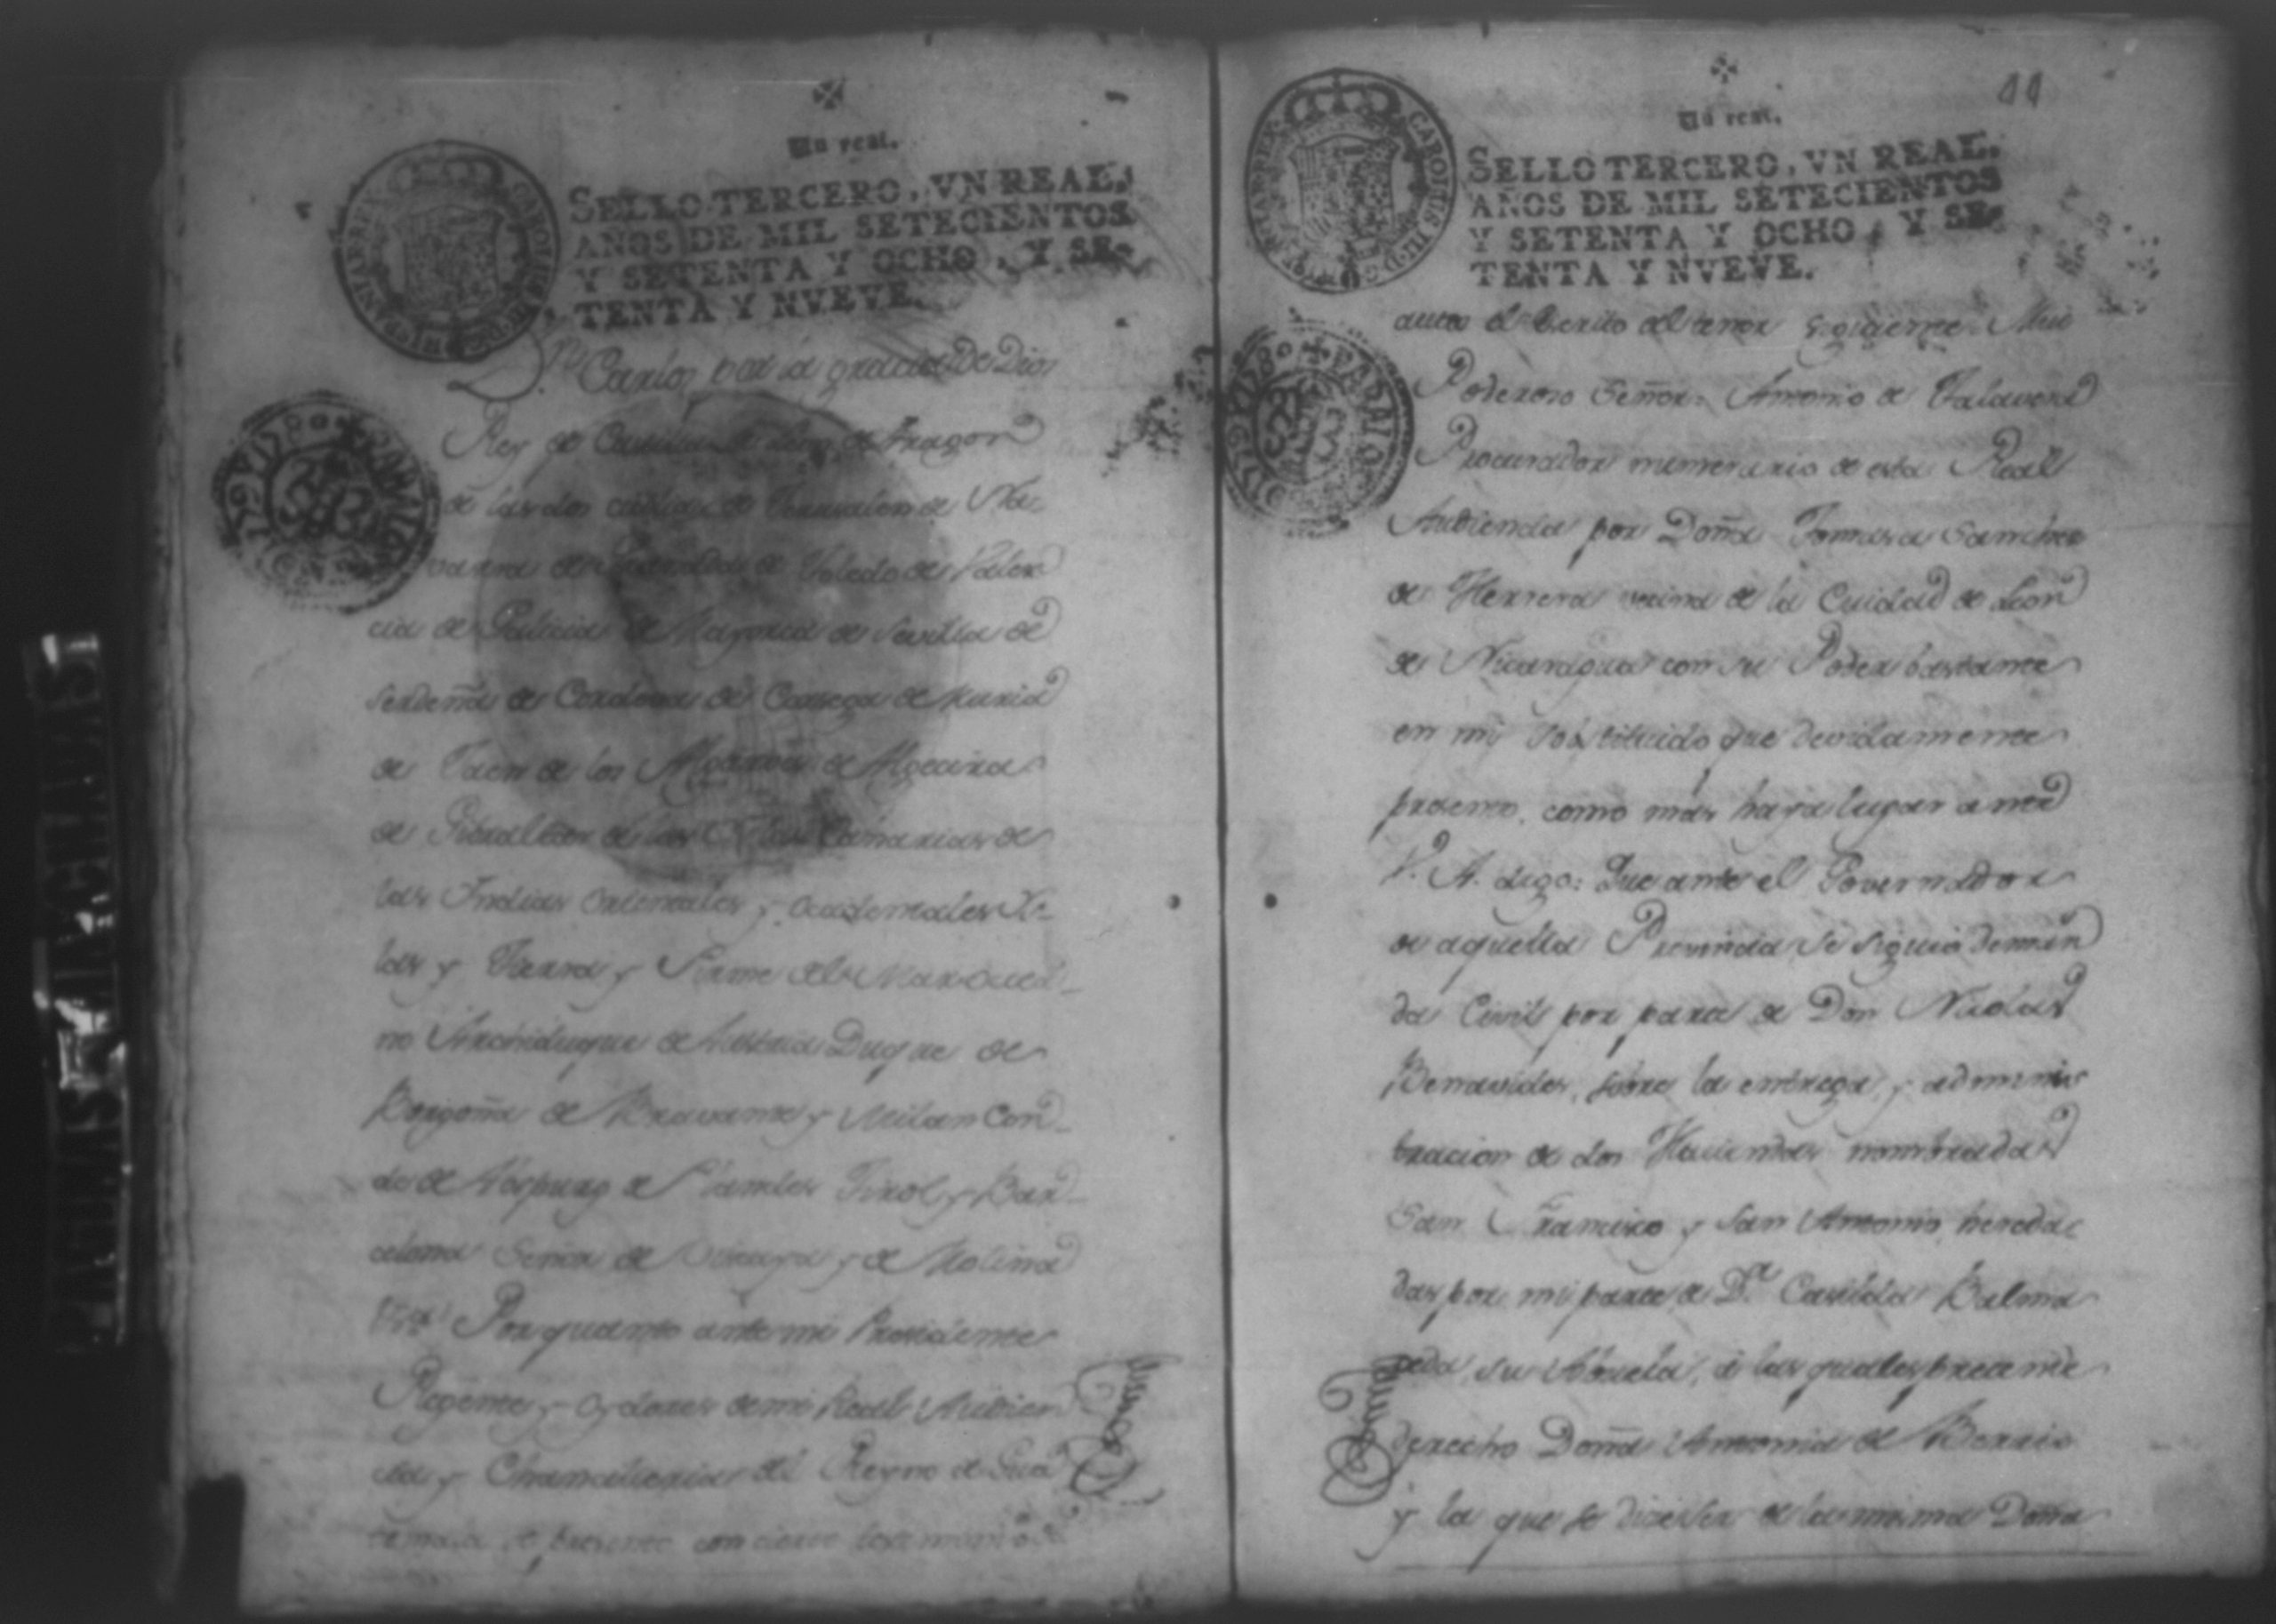 Un real.
SELLO TERCERO, VN REAL,
AÑOS DE MIL SETECIENTOS
Y SETENTA Y OCHO, Y SE-
TENTA Y NVEVE.
Dn. Carlos por la gracia de Dios
Rey de Castilla de Leon de Aragon
de las dos cicilias de Jerusalem de Na-
varra de Granada de Toledo de Valen
cia de Galicia de Mayorca de Sevilla de
Serdeña de Cordova de Corsega de Murcia
de Jaen de los Algarves de Algecira
de Gibraltar de las Yslas Canarias de
las Indias orientales y occidentales Ys-
las y Tierra Firme del Mar occea-
no Archiduque de Austria Duque de
Borgoña de Bravante y Milan Con-
de de Aspurg de Flandes Tirol y Bar-
celona Señor de Viscaya y de Molina
Por quanto ante mi Precidente
Regente y Oydores de mi Real Audien
cia y Chancilleria del Reyno de Goa
temala se presentó con cierto testimonio de
11
Un real.
SELLO TERCERO, VN REAL,
AÑOS DE MIL SETECIENTOS
Y SETENTA Y OCHO, Y SE-
TENTA Y NVEVE.
CAROLUS III D G HISPANIAR REX
autos el Escrito del tenor siguiente. Mui
Poderoso Señor: Antonio de Talavera
Procurador numerario de esta Real
Audiencia por Doña Tomasa Sanches
de Herrera vecina de la Cuidad de Leon
de Nicaragua con su Poder bastante
en mi sostituido que devidamente
presento, como más haya lugar ante
V. A. digo: Que ante el Governador
de aquella Provincia se siguió deman
da Civil por parte de Don Nicolas
Benavides, sobre la entrega, y adminis
tracion de dos Haciendas nombradas
San Francisco y San Antonio, hereda
das por mi parte de Da. Casilda Balma
ceda, su Abuela, á las quales pretende
derecho Doña Antonia de Berrio
y la que se dice ser de la misma Doña